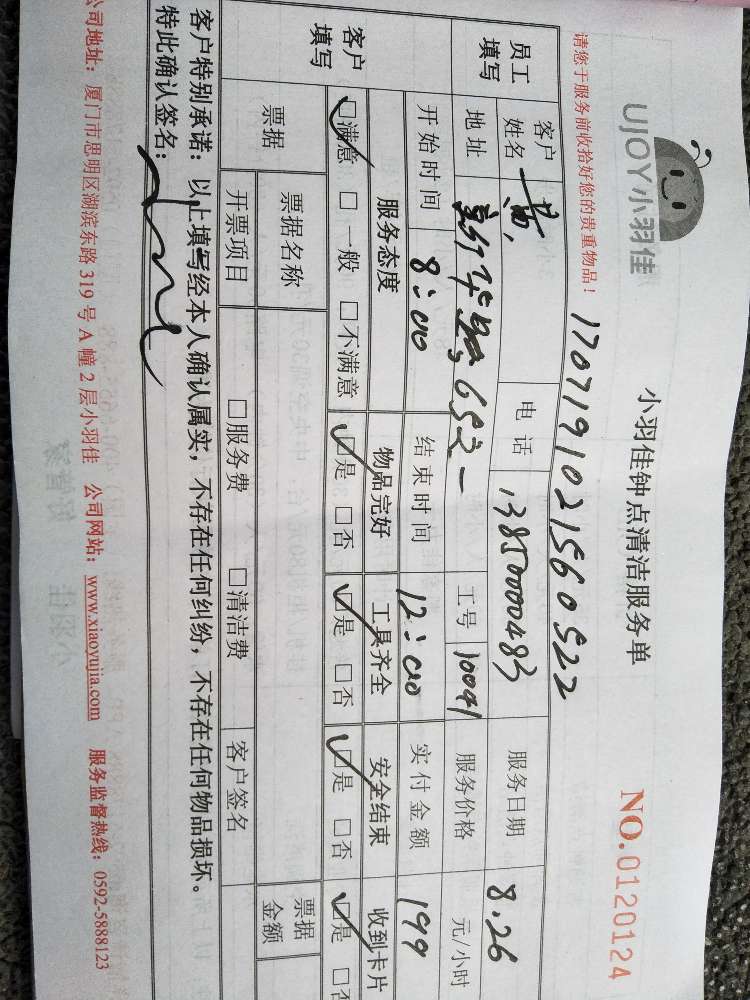 UJOY小羽佳
小羽佳钟点清洁服务单
NO.0120124
请您于服务前收拾好您的贵重物品！
1707191021560522
员工填写
客户姓名 黄 电话 13850000483 服务日期 8.26
地址 652一 工号 10041 服务价格 元/小时
开始时间 8:00 结束时间 12:00 实付金额 199
客户填写
服务态度 物品完好 工具齐全 安全结束 收到卡片
☑满意 □一般 □不满意 ☑是 □否 ☑是 □否 ☑是 □否 ☑是 □否
票据 票据名称 票据金额
开票项目 □服务费 □清洁费 客户签名
客户特别承诺：以上填写经本人确认属实，不存在任何纠纷，不存在任何物品损坏。
特此确认签名：
公司地址：厦门市思明区湖滨东路 319 号 A 幢 2 层小羽佳 公司网站：www.xiaoyujia.com 服务监督热线：0592-5888123